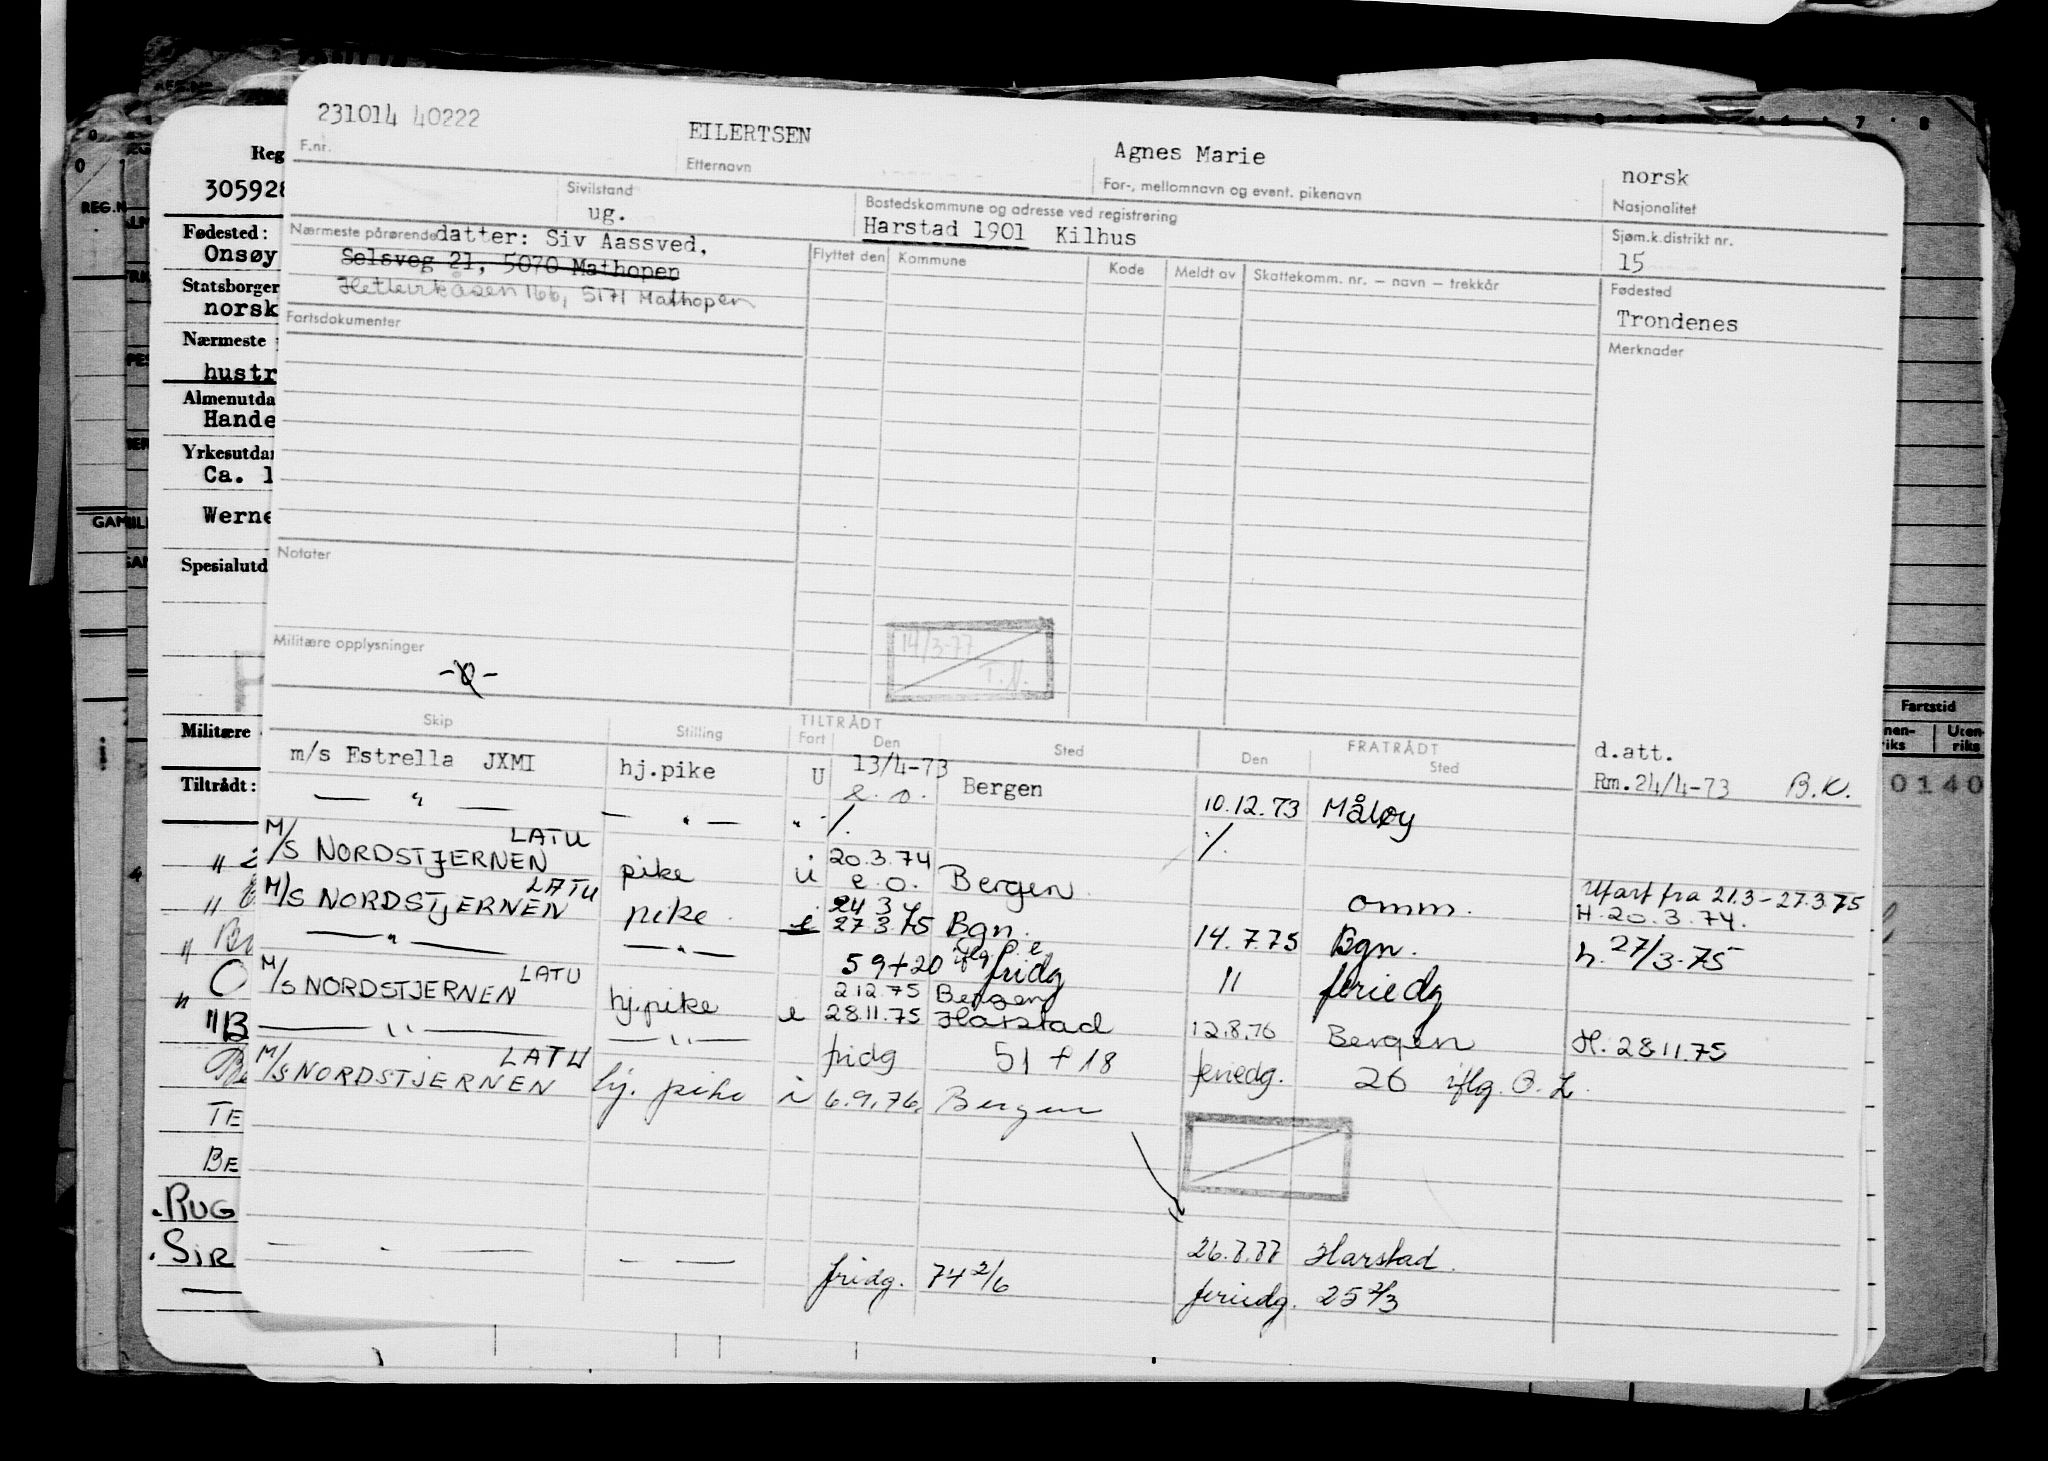 231014 40222 EILERTSEN Agnes Marie norsk
F.nr. Etternavn For-, mellomnavn og event. pikenavn Nasjonalitet
Sivilstand Bostedskommune og adresse ved registrering Sjøm.k.distrikt nr.
ug. Harstad 1901 Kilhus 15
Nærmeste pårørende datter: Siv Aassved, Flyttet den Kommune Kode Meldt av Skattekomm. nr. – navn – trekkår Fødested
Selsveg 21, 5070 Mathopen Trondenes
Hetlevikåsen 166, 5171 Mathopen
Fartsdokumenter Merknader
Notater
14/3-77
T.N.
Militære opplysninger
-0-
Skip Stilling TILTRÅDT FRATRÅDT d.att.
Fart Den Sted Den Sted
m/s Estrella JXMI hj.pike U 13/4-73 Bergen Rm.24/4-73 B.K.
— " — — " — " e.o. 10.12.73 Måløy
M/S NORDSTJERNEN LATU pike i 20.3.74 Bergen
e.o. omm. Ufart fra 21.3–27.3.75
M/S NORDSTJERNEN LATU pike 24 3 H.20.3.74.
27.3.75 Bgn. 14.7.75 Bgn. h. 27/3-75
— " — — " — 59+20 fridg 11 feriedg
M/S NORDSTJERNEN LATU hj.pike 2.12.75 Bergen
28.11.75 Harstad 12.8.76 Bergen H. 28.11.75
— " — — " — fridg 51 + 18 feriedg. 26 iflg. O.L.
M/S NORDSTJERNEN LATU hj. pike i 6.9.76. Bergen
Harstad.
fridg. 74 2/6 feriedg. 25 2/3
Reg
305928
REG.N
Fødested:
Onsøy
Statsborger
norsk
Nærmeste
hustr
Almenutda
Hande
Yrkesutda
Ca. 1
Werne
Spesialutd
Militære
Tiltrådt:
TE
BE
RUG
SIR
Fartstid
Uten-
riks
0140